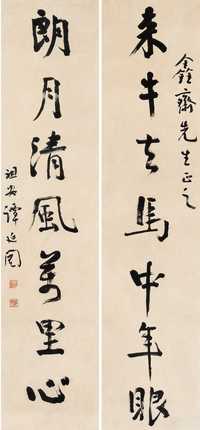 鑫齋先生正之
来牛去馬中年眼
朗月清風萬里心
祖安譚延闓